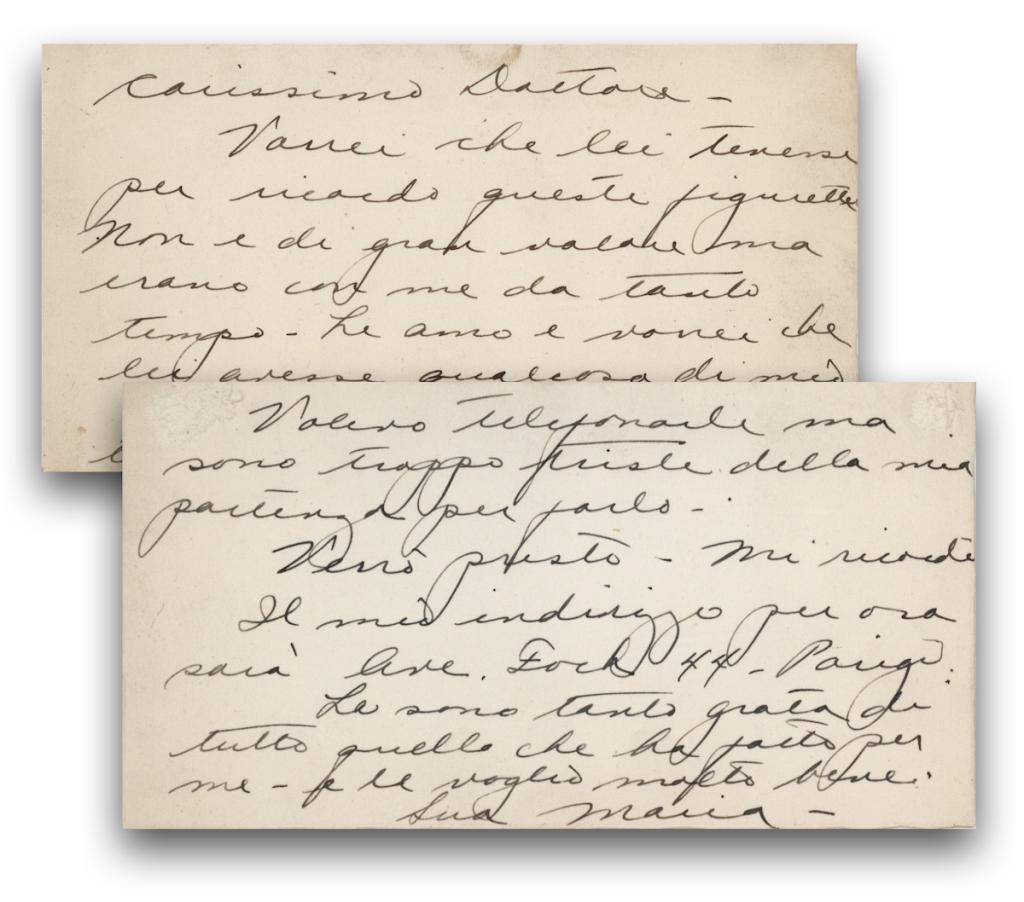 carissimo Dottore -
Vorrei che lei tenesse
per ricordo queste figurette
Non e di gran valore ma
erano con me da tanto
tempo - Le amo e vorrei che
lei avesse qualcosa di mio
Volevo telefonarle ma
sono troppo triste della mia
partenza per farlo -
Verrò presto - Mi ricordi
Il mio indirizzo per ora
sarà Ave. Foch 44 - Parigi.
Le sono tanto grata di
tutto quello che ha fatto per
me - e le voglio molto bene.
Sua Maria -